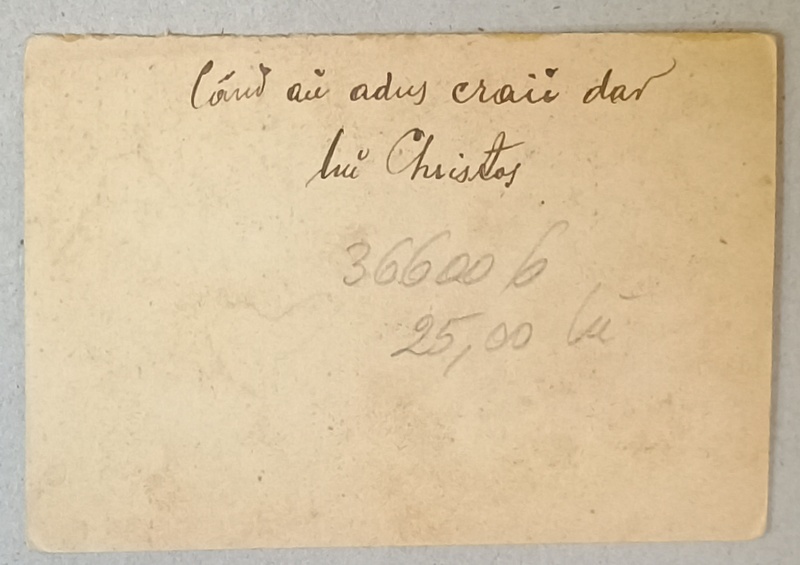 Când aŭ adus craiĭ dar
luĭ Christos
36600 b
25,00 lei